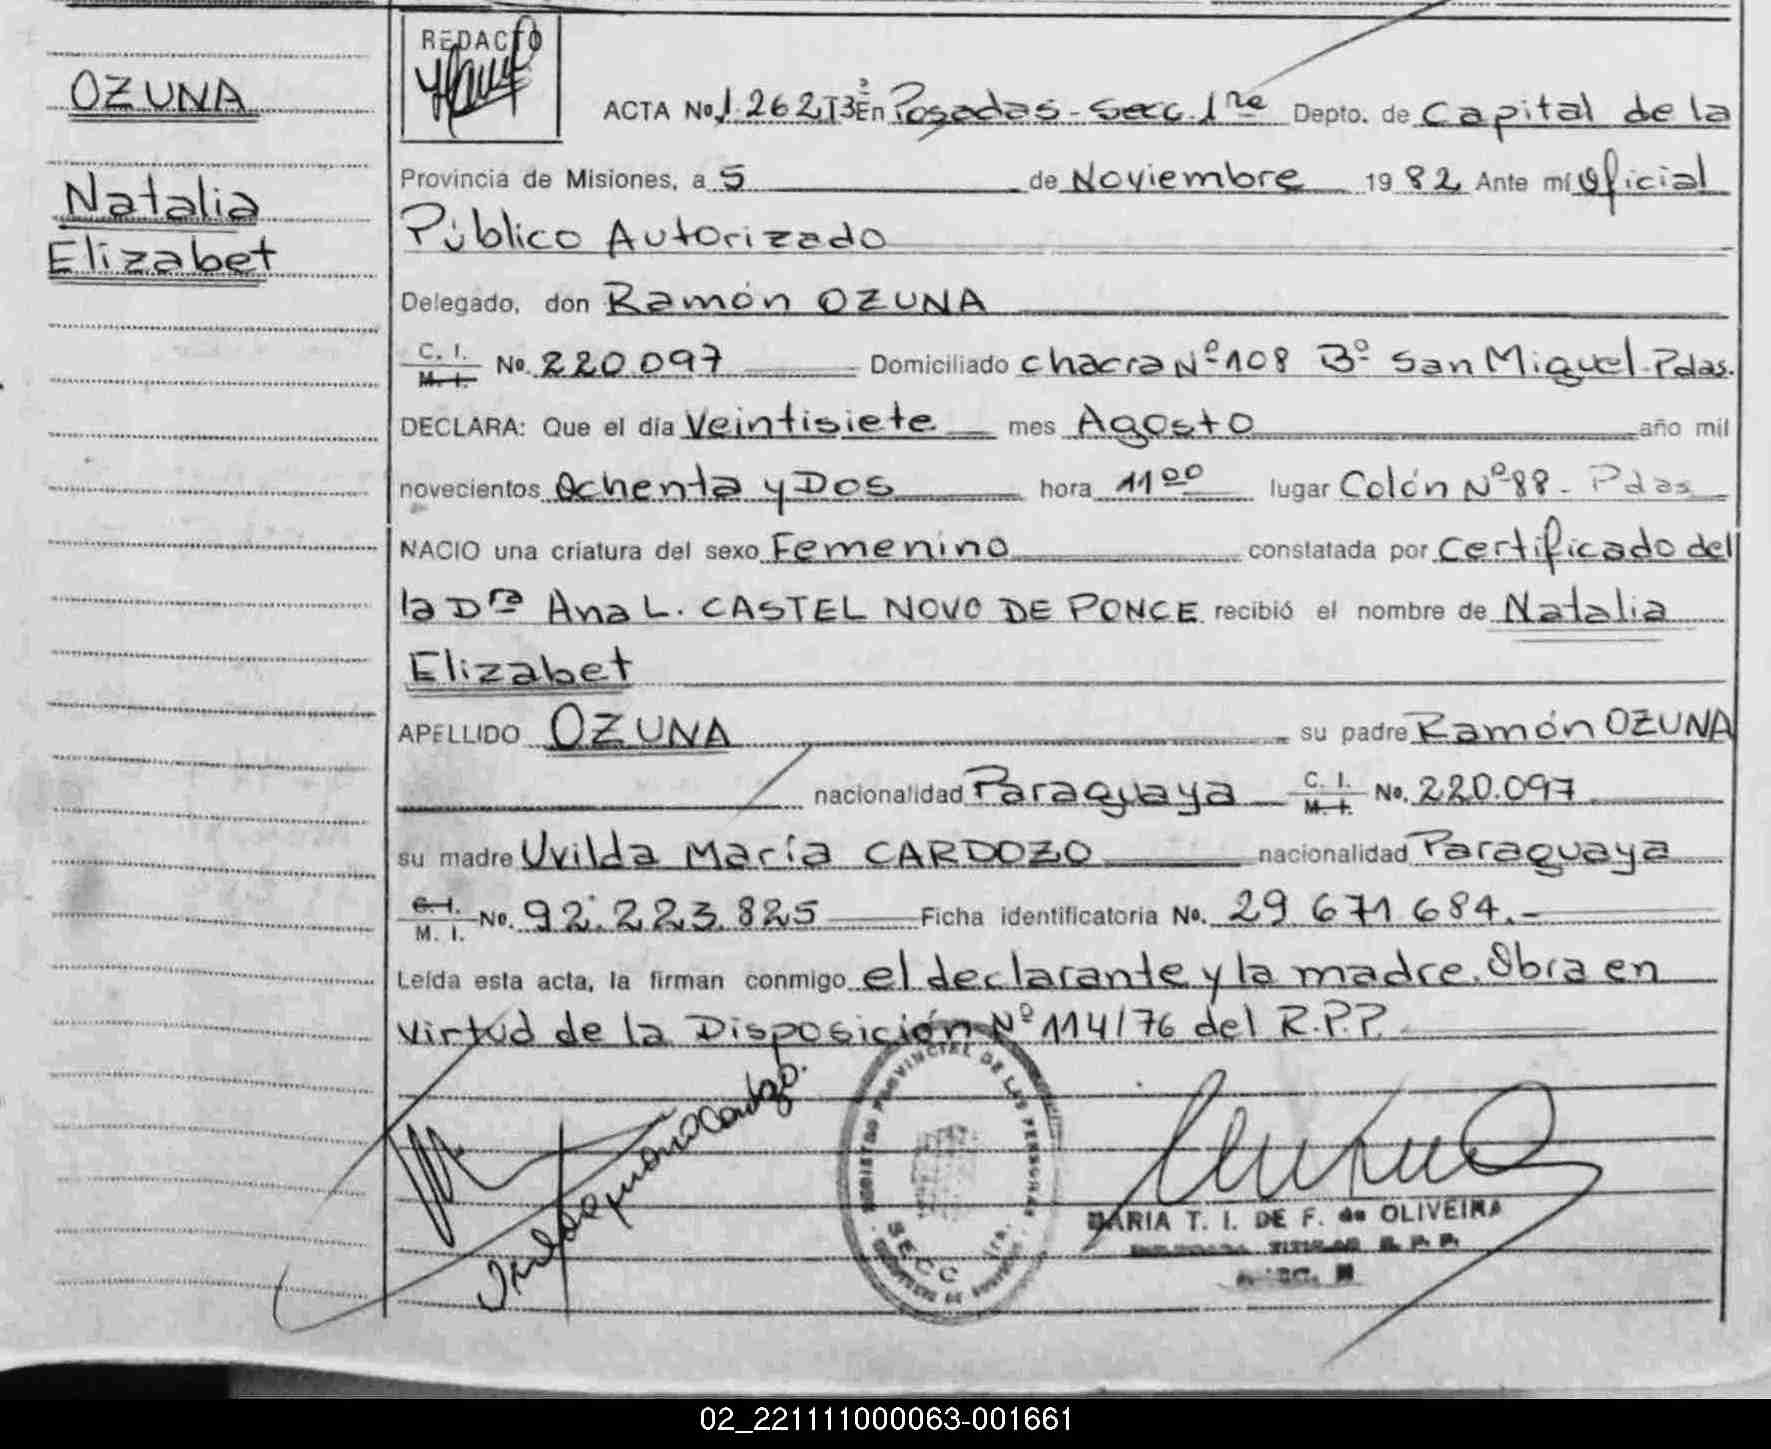 OZUNA
Natalia
Elizabet
REDACTÓ
ACTA No. 1.262 T3º En Posadas - Secc. 1ra Depto. de Capital de la
Provincia de Misiones, a 5 de Noviembre 1982 Ante mí Oficial
Público Autorizado
Delegado, don Ramón OZUNA
C. I.
M. I. No. 220.097 Domiciliado chacra Nº 108 Bº San Miguel-Pdas.
DECLARA: Que el día Veintisiete mes Agosto año mil
novecientos Ochenta y Dos hora 11 00 lugar Colón Nº 88 - Pdas
NACIO una criatura del sexo Femenino constatada por Certificado del
la Dra Ana L. CASTEL NOVO DE PONCE recibió el nombre de Natalia
Elizabet
APELLIDO OZUNA su padre Ramón OZUNA
nacionalidad Paraguaya C. I. M. I. No. 220.097
su madre Uvilda María CARDOZO nacionalidad Paraguaya
C. I.
M. I. No. 92.223.825 Ficha identificatoria No. 29 671 684.-
Leída esta acta, la firman conmigo el declarante y la madre. Obra en
virtud de la Disposición Nº 114/76 del R.P.P.
REGISTRO PROVINCIAL DE LAS PERSONAS
SECC. 1ra.
MARIA T. I. DE F. de OLIVEIRA
TITULAR R. P. P.
02_221111000063-001661